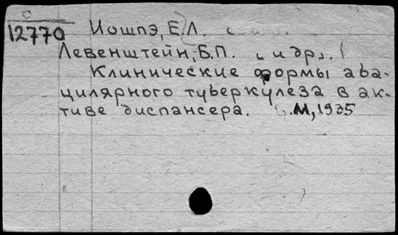 12770 Иошпэ, Е.Л.
Левенштейн, Б.П. и др.
Клинические формы аба-
цилярного туберкулеза в ак-
тиве диспансера. М, 1935